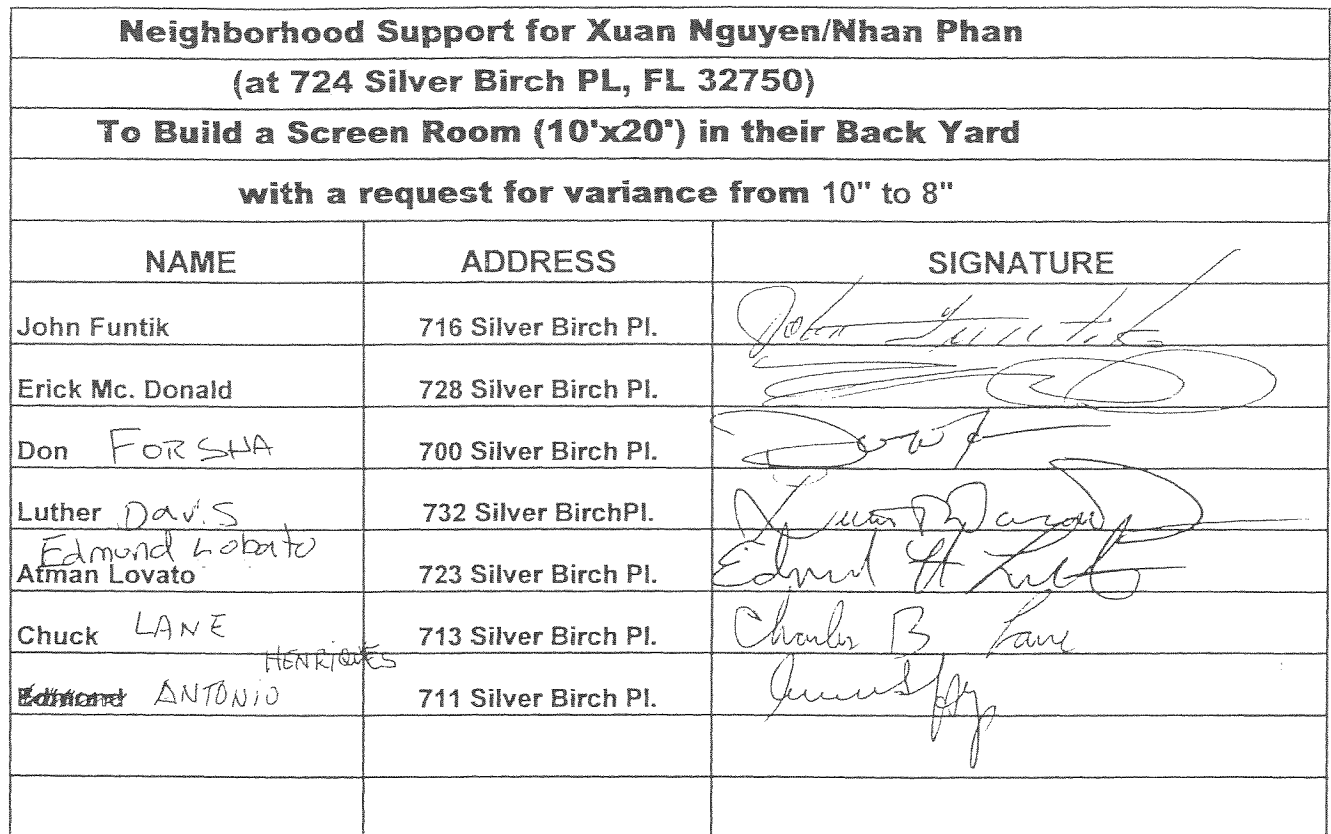 Neighborhood Support for Xuan Nguyen/Nhan Phan
(at 724 Silver Birch PL, FL 32750)
To Build a Screen Room (10'x20') in their Back Yard
with a request for variance from 10" to 8"
NAME ADDRESS SIGNATURE
John Funtik 716 Silver Birch Pl. John Funtik
Erick Mc. Donald 728 Silver Birch Pl.
Don FORSHA 700 Silver Birch Pl.
Luther Davis 732 Silver BirchPl.
Edmund Lobato
Atman Lovato 723 Silver Birch Pl.
Chuck LANE 713 Silver Birch Pl. Charles B Lane
HENRIQUES
Edmond ANTONIO 711 Silver Birch Pl.